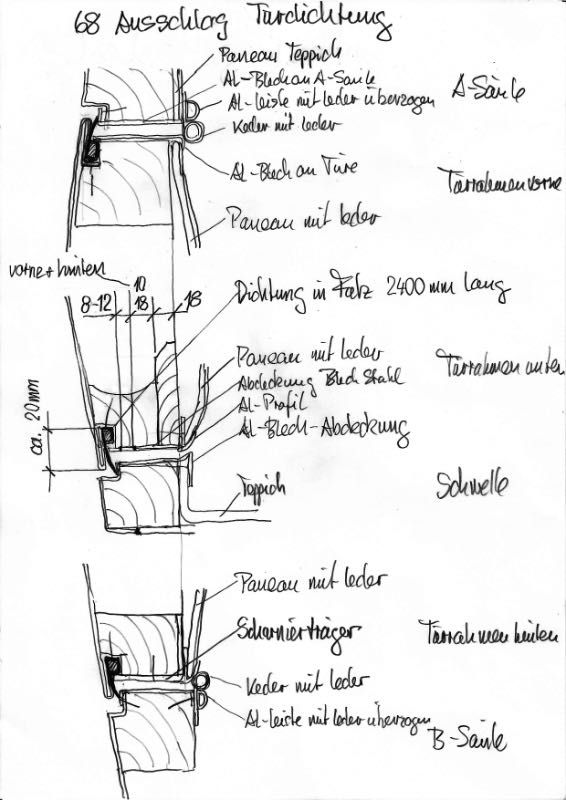 68 Ausschlag Türdichtung
Paneau Teppich
Al-Blech an A-Säule
Al-Leiste mit Leder überzogen
A-Säule
Keder mit Leder
Al-Blech an Türe
Türrahmen vorne
Paneau mit Leder
vorne + hinten
10
8-12 18 18
Dichtung in Falz 2400 mm lang
Paneau mit Leder
Türrahmen unten
Abdeckung Blech Stahl
Al-Profil
Al-Blech-Abdeckung
ca. 20mm
Teppich
Schwelle
Paneau mit Leder
Scharnierträger
Türrahmen hinten
Keder mit Leder
Al-Leiste mit Leder überzogen
B-Säule